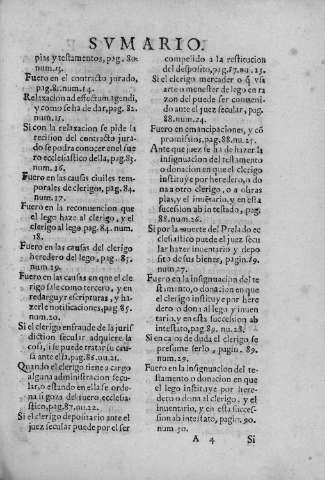 SVMARIO.
pias y testamentos, pag. 80.
num.13.
Fuero en el contracto jurado,
pag. 81. num.14.
Relaxacion ad effectum agendi,
y como se ha de dar, pag. 82.
num.15.
Si con la relaxacion se pide la
recision del contracto jura-
do se podra conocer en el fue
ro ecclesiastico della, pag. 83.
num.16.
Fuero en las causas ciuiles tem
porales de clerigos, pag. 84.
num.17.
Fuero en la reconuencion que
el lego haze al clerigo, y el
clerigo al lego pag. 84. num.
18.
Fuero en las causas del clerigo
heredero del lego, pag. 85.
num.19.
Fuero en las causas en que el cle
rigo sale como tercero, y en
redarguyr escripturas, y ha-
zerle notificaciones, pag 85.
num.20.
Si el clerigo en fraude de la juris
diction secular adquiere la
cosa, si se puede tratar su cau
sa ante ella, pag. 86. nu. 21.
Quando el clerigo tiene a cargo
alguna administracion secu-
lar, o estando en ella se orde-
na si goza del fuero ecclesia-
stico, pag. 87. nu. 22.
Si el clerigo depositario ante el
juez secular puede por el ser
compelido a la restitucion
del desposito, pag. 87. nu. 23.
Si el clerigo mercader o q̃ vsa
arte o menester de lego en ra
zon del puede ser conueni-
do ante el juez secular, pag.
88. num.24.
Fuero en emancipaciones, y cõ
promissos, pag. 88. nu. 25.
Ante que juez se ha de hazer la
insignuacion del testamento
o donacion en que el clerigo
instituye por heredero, o do
na a otro clerigo, o a obras
pias, y el inuẽtario, y en esta
succession ab intestado, pag.
88. num.26.
Si por la muerte del Prelado ec
clesiastico puede el juez secu
lar hazer inuentario y depo
sito de sus bienes, pagin. 89.
num.27.
Fuero en la insignuacion del te
stamento, o donacion en que
el clerigo instituye por here
dero o dona al lego y inuen
tario, y en esta succession ab
intestado, pag. 89. nu. 28.
Si en caso de duda el clerigo se
presume serlo, pagin. 89.
num. 29.
Fuero en la insignuacion del te-
stamento o donacion en que
el lego instituye por here-
dero o dona al clerigo, y el
inuentario, y en esta succes-
sion ab intestado, pagin. 90.
num. 30.
A 4 Si